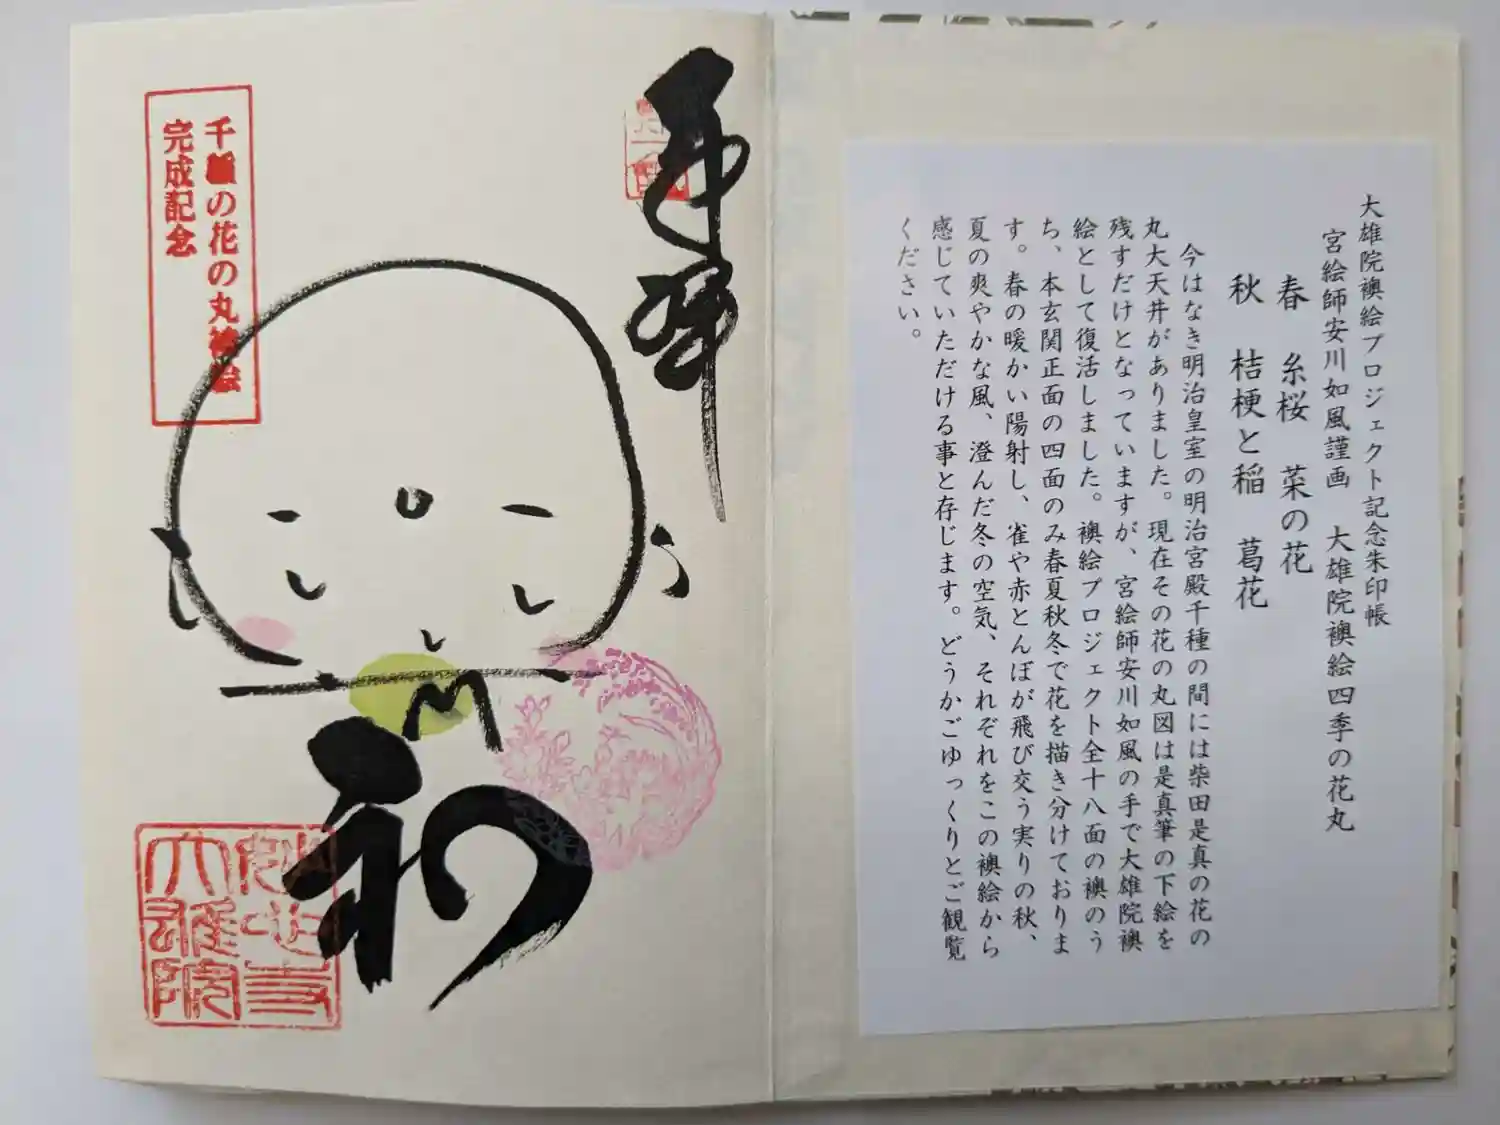 大雄院襖絵プロジェクト記念朱印帳
宮絵師安川如風謹画　大雄院襖絵四季の花丸
春　糸桜　菜の花
秋　桔梗と稲　葛花
今はなき明治皇室の明治宮殿千種の間には柴田是真の花の
丸大天井がありました。現在その花の丸図は是真筆の下絵を
残すだけとなっていますが、宮絵師安川如風の手で大雄院襖
絵として復活しました。襖絵プロジェクト全十八面の襖のう
ち、本玄関正面の四面のみ春夏秋冬で花を描き分けておりま
す。春の暖かい陽射し、雀や赤とんぼが飛び交う実りの秋、
夏の爽やかな風、澄んだ冬の空気、それぞれをこの襖絵から
感じていただける事と存じます。どうかごゆっくりとご観覧
ください。
奉拝
和
千種の花の丸襖絵
完成記念
妙心寺
大雄院